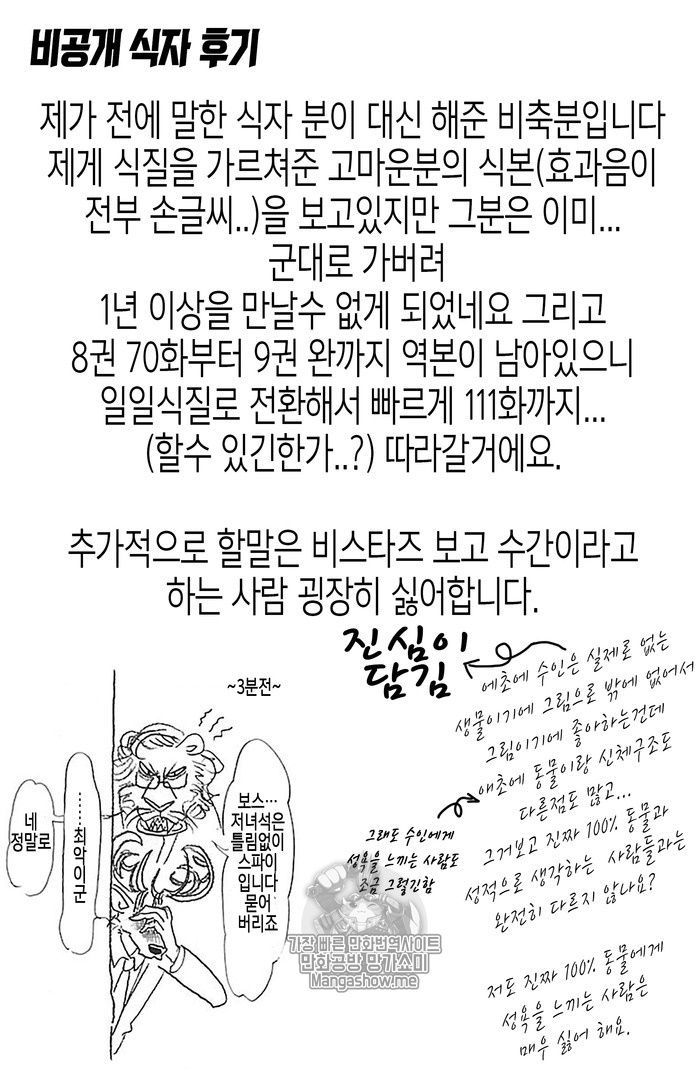 비공개 식자 후기
제가 전에 말한 식자 분이 대신 해준 비축분입니다
제게 식질을 가르쳐준 고마운분의 식본(효과음이
전부 손글씨..)을 보고있지만 그분은 이미...
군대로 가버려
1년 이상을 만날수 없게 되었네요 그리고
8권 70화부터 9권 완까지 역본이 남아있으니
일일식질로 전환해서 빠르게 111화까지...
(할수 있긴한가..?) 따라갈거에요.
추가적으로 할말은 비스타즈 보고 수간이라고
하는 사람 굉장히 싫어합니다.
진심이
담김
에초에 수인은 실제로 없는
생물이기에 그림으로 밖에 없어서
그림이기에 좋아하는건데
애초에 동물이랑 신체구조도
다른점도 많고...
그거보고 진짜 100% 동물과
성적으로 생각하는 사람들과는
완전히 다르지 않나요?
그래도 수인에게
성욕을 느끼는 사람도
조금 그렇긴함
저도 진짜 100% 동물에게
성욕을 느끼는 사람은
매우 싫어 해요.
~3분전~
보스…
저녀석은
틀림없이
스파이
입니다
묻어
버리죠
……최악이군
네
정말로
가장 빠른 만화번역사이트
만화공방 망가쇼미
Mangashow.me